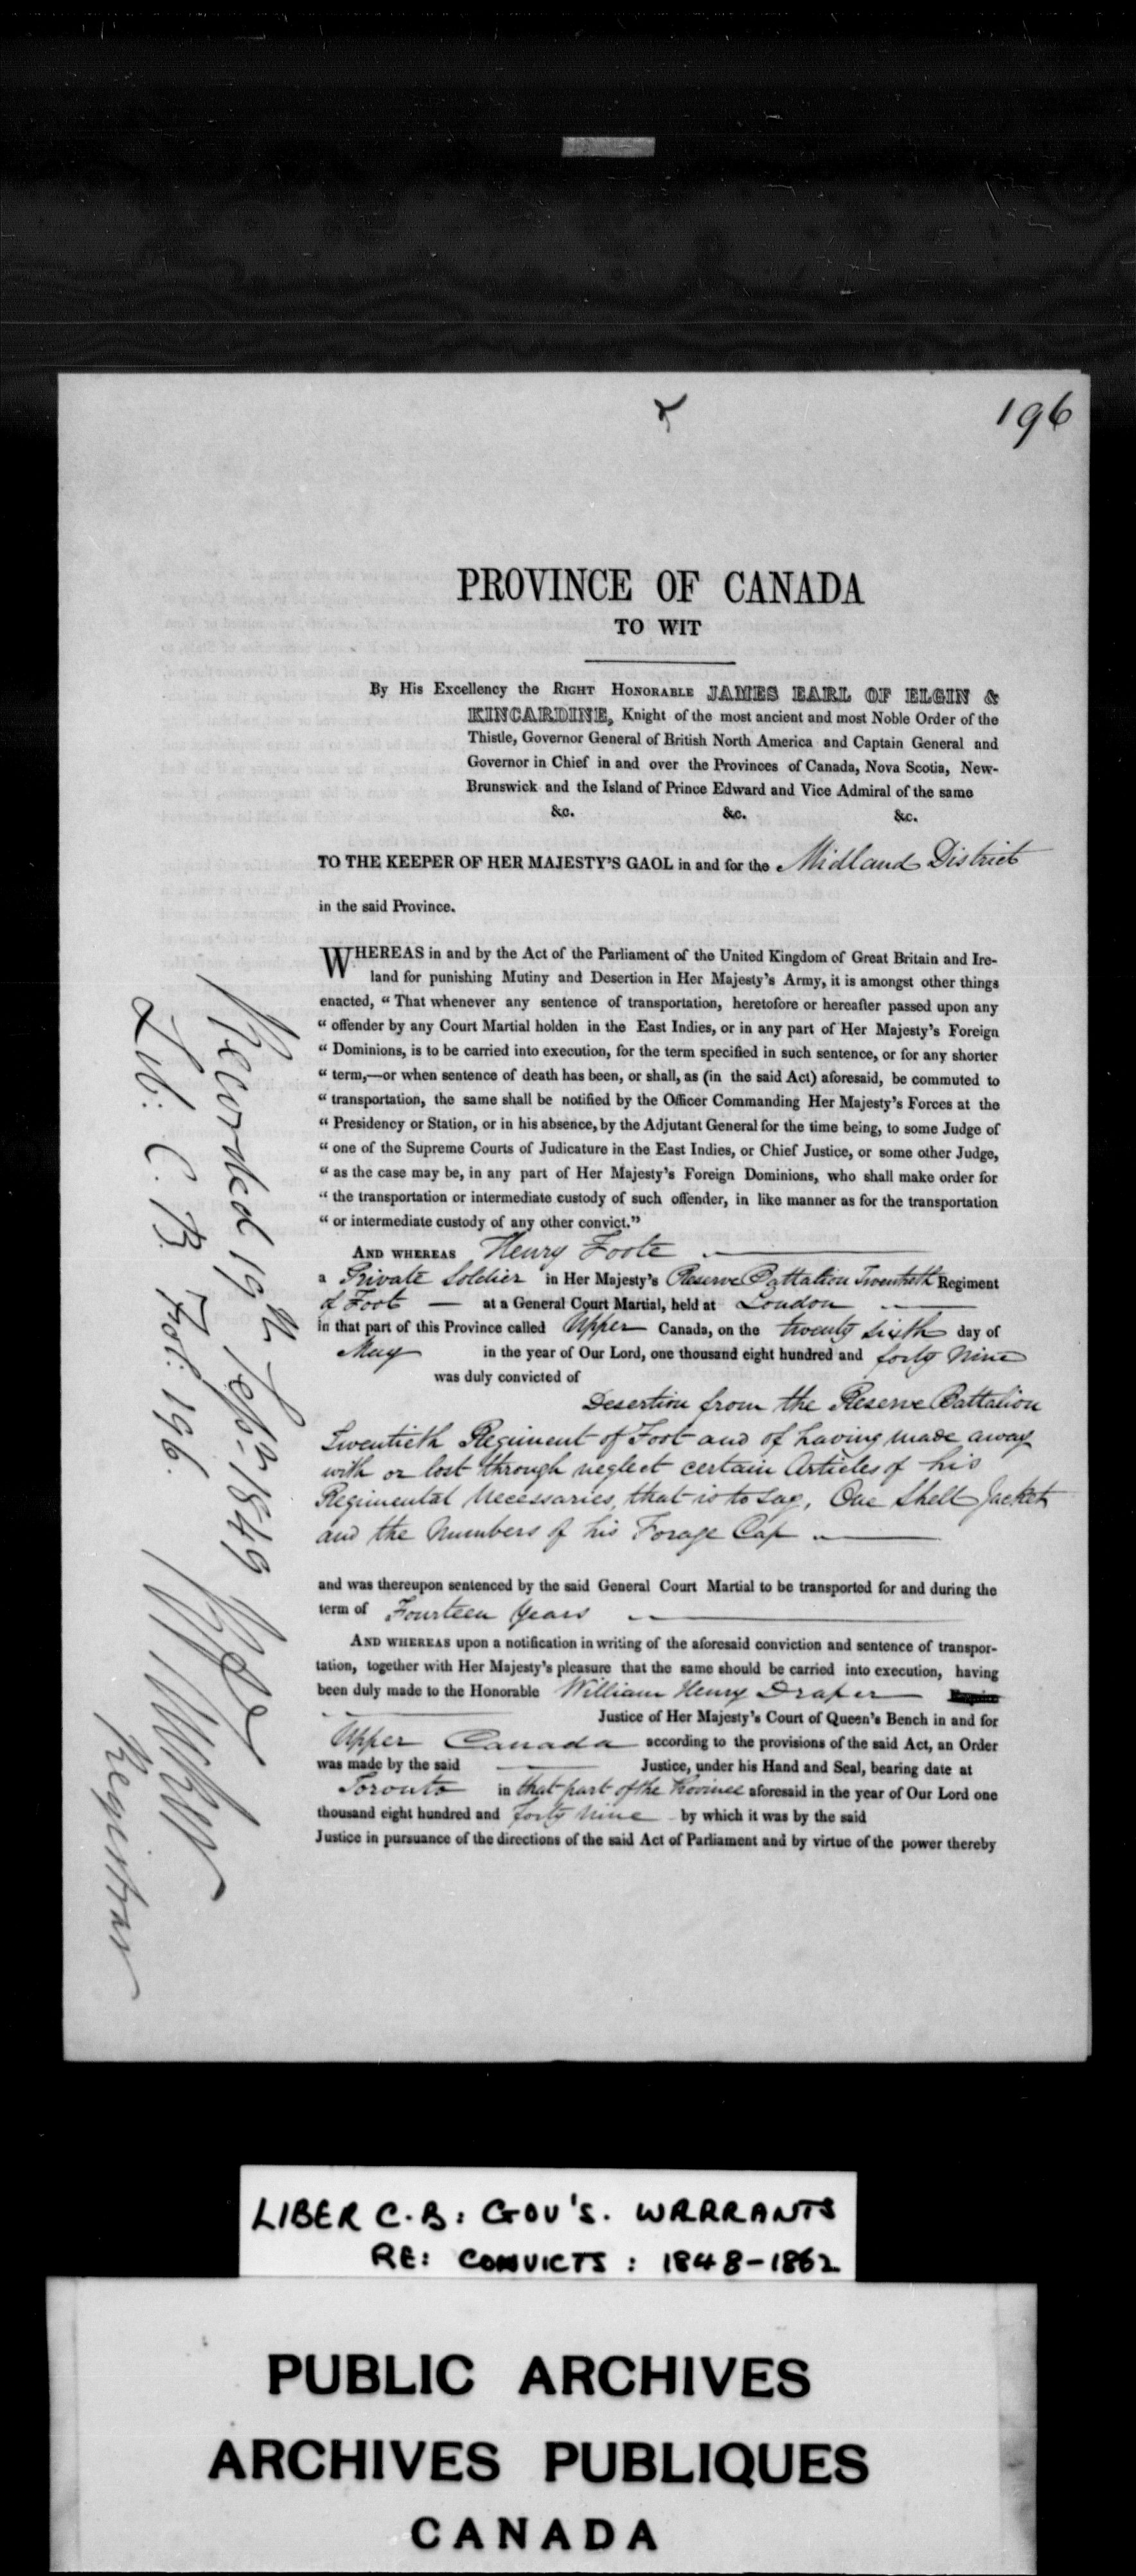 196
PROVINCE OF CANADA
TO WIT
By His Excellency the Right Honorable JAMES EARL OF ELGIN &
KINCARDINE, Knight of the most ancient and most Noble Order of the
Thistle, Governor General of British North America and Captain General and
Governor in Chief in and over the Provinces of Canada, Nova Scotia, New-
Brunswick and the Island of Prince Edward and Vice Admiral of the same
&c. &c. &c.
TO THE KEEPER OF HER MAJESTY'S GAOL in and for the Midland District
in the said Province.
WHEREAS in and by the Act of the Parliament of the United Kingdom of Great Britain and Ire-
land for punishing Mutiny and Desertion in Her Majesty's Army, it is amongst other things
enacted, “ That whenever any sentence of transportation, heretofore or hereafter passed upon any
“ offender by any Court Martial holden in the East Indies, or in any part of Her Majesty's Foreign
“ Dominions, is to be carried into execution, for the term specified in such sentence, or for any shorter
“ term,—or when sentence of death has been, or shall, as (in the said Act) aforesaid, be commuted to
“ transportation, the same shall be notified by the Officer Commanding Her Majesty's Forces at the
“ Presidency or Station, or in his absence, by the Adjutant General for the time being, to some Judge of
“ one of the Supreme Courts of Judicature in the East Indies, or Chief Justice, or some other Judge,
“ as the case may be, in any part of Her Majesty's Foreign Dominions, who shall make order for
“ the transportation or intermediate custody of such offender, in like manner as for the transportation
“ or intermediate custody of any other convict.”
And whereas Henry Foote
a Private Soldier in Her Majesty's Reserve Battalion Twentieth Regiment
of Foot — at a General Court Martial, held at London
in that part of this Province called Upper Canada, on the twenty sixth day of
May in the year of Our Lord, one thousand eight hundred and forty nine
was duly convicted of
Desertion from the Reserve Battalion
Twentieth Regiment of Foot and of having made away
with or lost through neglect certain Articles of his
Regimental Necessaries, that is to say, One Shell Jacket
and the Numbers of his Forage Cap
and was thereupon sentenced by the said General Court Martial to be transported for and during the
term of Fourteen Years
And whereas upon a notification in writing of the aforesaid conviction and sentence of transpor-
tation, together with Her Majesty's pleasure that the same should be carried into execution, having
been duly made to the Honorable William Henry Draper
Justice of Her Majesty's Court of Queen's Bench in and for
Upper Canada according to the provisions of the said Act, an Order
was made by the said Justice, under his Hand and Seal, bearing date at
Toronto in that part of the Province aforesaid in the year of Our Lord one
thousand eight hundred and forty nine by which it was by the said
Justice in pursuance of the directions of the said Act of Parliament and by virtue of the power thereby
Recorded 19th Sepr 1849
Lib: C. B. Fol: 196.
Registrar
LIBER C.B: GOV'S. WARRANTS
RE: CONVICTS: 1848-1862
PUBLIC ARCHIVES
ARCHIVES PUBLIQUES
CANADA